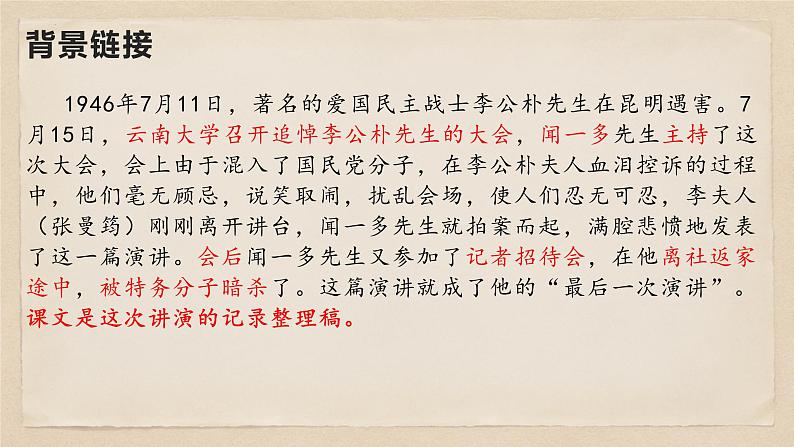 背景链接
1946年7月11日，著名的爱国民主战士李公朴先生在昆明遇害。7
月15日，云南大学召开追悼李公朴先生的大会，闻一多先生主持了这
次大会，会上由于混入了国民党分子，在李公朴夫人血泪控诉的过程
中，他们毫无顾忌，说笑取闹，扰乱会场，使人们忍无可忍，李夫人
（张曼筠）刚刚离开讲台，闻一多先生就拍案而起，满腔悲愤地发表
了这一篇演讲。会后闻一多先生又参加了记者招待会，在他离社返家
途中，被特务分子暗杀了。这篇演讲就成了他的“最后一次演讲”。
课文是这次讲演的记录整理稿。